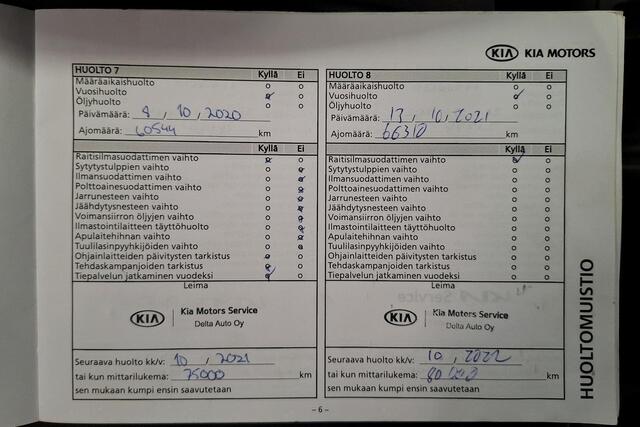 KIA KIA MOTORS
HUOLTO 7 Kyllä Ei
Määräaikaishuolto
Vuosihuolto
Öljyhuolto
Päivämäärä: 8 , 10 , 2020
Ajomäärä: 60544 km
Kyllä Ei
Raitisilmasuodattimen vaihto
Sytytystulppien vaihto
Ilmansuodattimen vaihto
Polttoainesuodattimen vaihto
Jarrunesteen vaihto
Jäähdytysnesteen vaihto
Voimansiirron öljyjen vaihto
Ilmastointilaitteen täyttöhuolto
Apulaitehihnan vaihto
Tuulilasinpyyhkijöiden vaihto
Ohjainlaitteiden päivitysten tarkistus
Tehdaskampanjoiden tarkistus
Tiepalvelun jatkaminen vuodeksi
Leima
KIA Kia Motors Service
Delta Auto Oy
Seuraava huolto kk/v: 10 , 2021
tai kun mittarilukema: 75000 km
sen mukaan kumpi ensin saavutetaan
HUOLTO 8 Kyllä Ei
Määräaikaishuolto
Vuosihuolto
Öljyhuolto
Päivämäärä: 13 , 10 , 2021
Ajomäärä: 66310 km
Kyllä Ei
Raitisilmasuodattimen vaihto
Sytytystulppien vaihto
Ilmansuodattimen vaihto
Polttoainesuodattimen vaihto
Jarrunesteen vaihto
Jäähdytysnesteen vaihto
Voimansiirron öljyjen vaihto
Ilmastointilaitteen täyttöhuolto
Apulaitehihnan vaihto
Tuulilasinpyyhkijöiden vaihto
Ohjainlaitteiden päivitysten tarkistus
Tehdaskampanjoiden tarkistus
Tiepalvelun jatkaminen vuodeksi
Leima
KIA Kia Motors Service
Delta Auto Oy
Seuraava huolto kk/v: 10 , 2022
tai kun mittarilukema: 80 000 km
sen mukaan kumpi ensin saavutetaan
HUOLTOMUISTIO
– 6 –